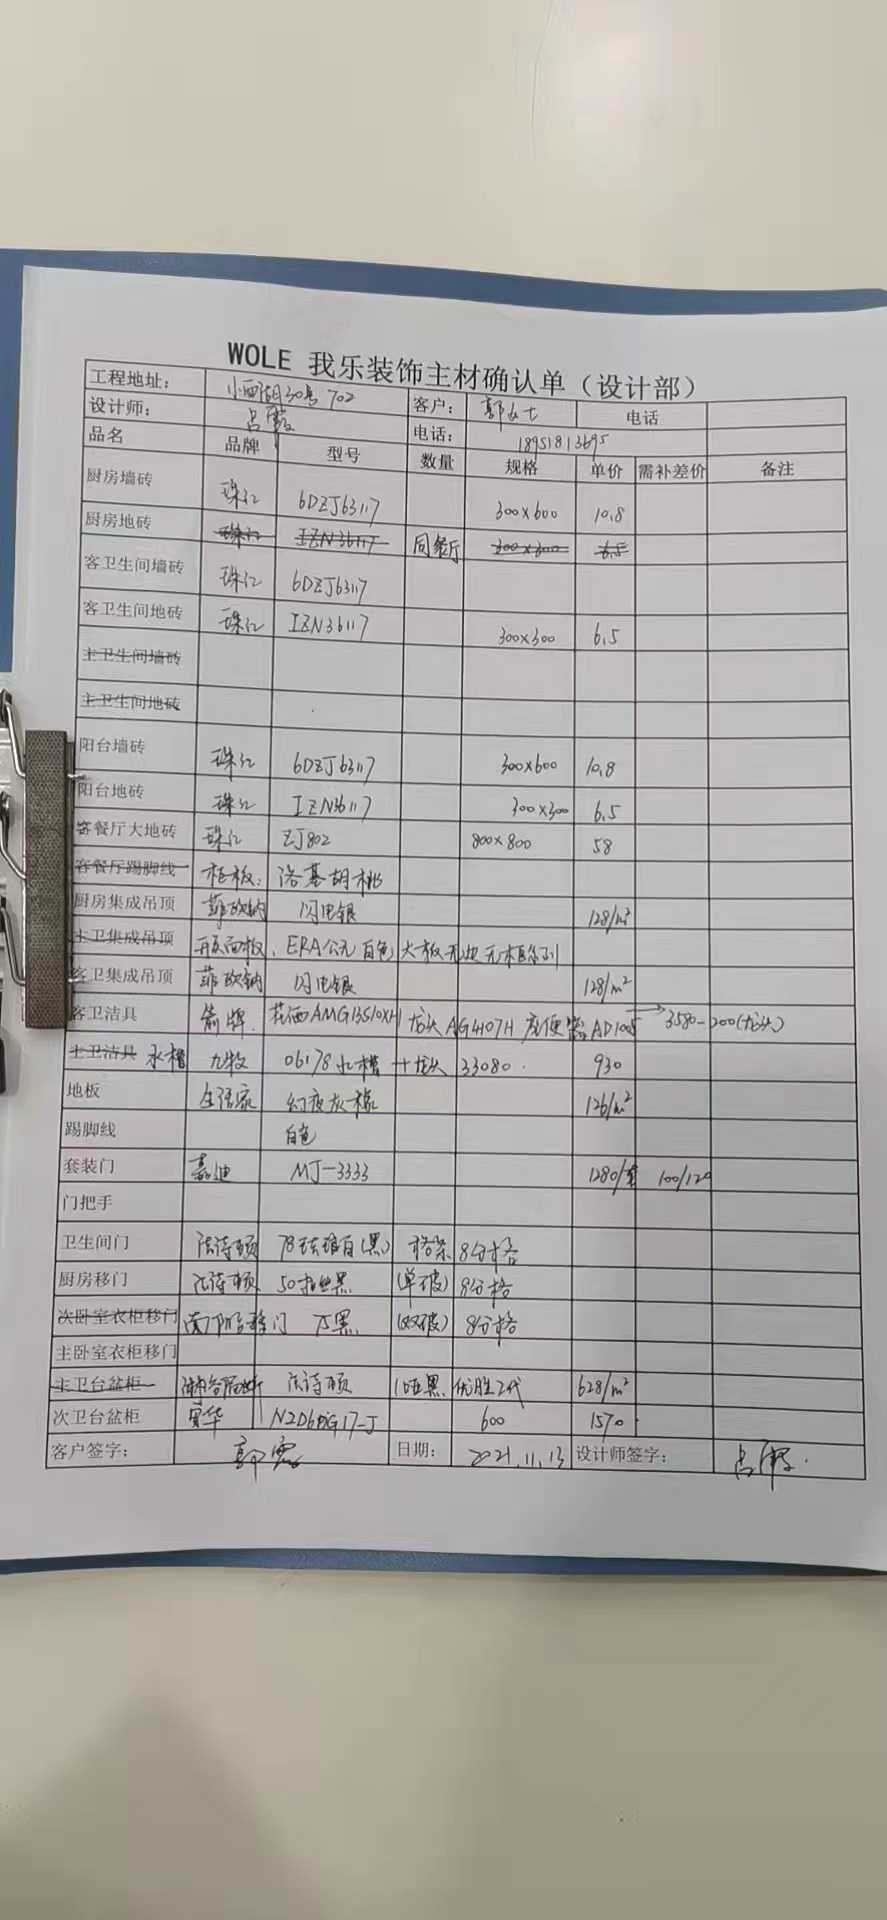 WOLE 我乐装饰主材确认单（设计部）
工程地址： 小西湖30号 702 客户： 郭女士 电话
设计师： 吕霞 电话： 18951813695
品名 品牌 型号 数量 规格 单价 需补差价 备注
厨房墙砖 珠江 6DZJ63117 300×600 10.8
厨房地砖 珠江 IZN36117 同餐厅 300×300 6.5
客卫生间墙砖 珠江 6DZJ63117
客卫生间地砖 珠江 IZN36117 300×300 6.5
主卫生间墙砖
主卫生间地砖
阳台墙砖 珠江 6DZJ63117 300×600 10.8
阳台地砖 珠江 IZN36117 300×300 6.5
客餐厅大地砖 珠江 ZJ802 800×800 58
客餐厅踢脚线 柜板： 洛基胡桃
厨房集成吊顶 菲欧纳 闪电银 128/m²
主卫集成吊顶 开关面板、ERA公元 白色 大板无边无框系列
客卫集成吊顶 菲欧纳 闪电银 128/m²
客卫洁具 箭牌 花洒AMG13S10XH 龙头AG4107H 座便器AD1005 → 3580-200(龙头)
主卫洁具 水槽 九牧 06178水槽 + 龙头 33080. 930
地板 生活家 幻夜灰橡 126/m²
踢脚线 白色
套装门 嘉迪 MJ-3333 1280/套 100/129
门把手
卫生间门 法诗顿 78珐琅白(黑) 格条 8分格
厨房移门 法诗顿 50拉丝黑 (单玻) 8分格
次卧室衣柜移门 南阳台移门 75黑 (双玻) 8分格
主卧室衣柜移门
主卫台盆柜 法诗顿 哑黑 优胜2代 628/m²
次卫台盆柜 安华 N2D60G17-J 600 1570
客户签字： 郭霞 日期： 2021.11.13 设计师签字： 吕霞.